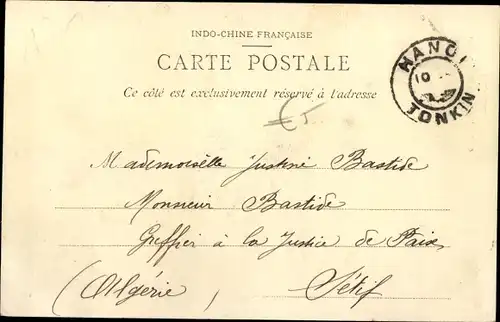 INDO-CHINE FRANÇAISE
CARTE POSTALE
Ce côté est exclusivement réservé à l'adresse
HANOI
10
TONKIN
Mademoiselle Justine Bastide
Monsieur Bastide
Greffier à la Justice de Paix
(Algérie) Sétif